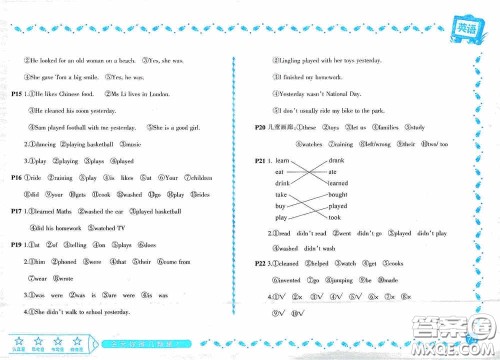 英语
②He looked for an old woman on a beach. ③Yes, she was.
④She gave Tom a big smile. ⑤Yes, it was.
P15 1.①He likes Chinese food. ②Ms Li lives in London.
③He cleaned his room yesterday.
④Sam played football with me yesterday. ⑤She is a good girl.
2.①dancing ②playing basketball ③music
3.①play ②playing ③plays ④played
P16 ①ride ②raining ③play ④is ⑤likes ⑥are ⑦Your ⑧children
⑨did ⑩your ⑪gets ⑫cook ⑬washed ⑭do ⑮play ⑯rides
P17 1.①learned Maths ②washed the car ③played basketball
④did his homework ⑤watched TV
P19 1.①at ②of ③telling ④on ⑤plays ⑥does
2.①phoned ②am ③have ④is ⑤their ⑥come from
⑦wear ⑧wrote
3.①was were ②was is ③were are ④are were
4.①She didn't walk to school yesterday.
②Lingling played with her toys yesterday.
③I finished my homework.
④Yesterday wasn't National Day.
⑤I don't usually ride my bike to school.
P20 儿童画廊:①these ②toys ③let us ④families ⑤study
⑥they ⑦writing ⑧left/wrong ⑨their ⑩two/ too
P21 1. learn drank
eat ate
drink learned
take bought
buy played
play took
2.①read didn't read ②went didn't go ③played didn't play
P22 ①clever ②made ③isn't ④asked ⑤cooks
⑥invented ⑦going ⑧jumping ⑨be ⑩washed
4.①√ ②× ③× ④√ ⑤√